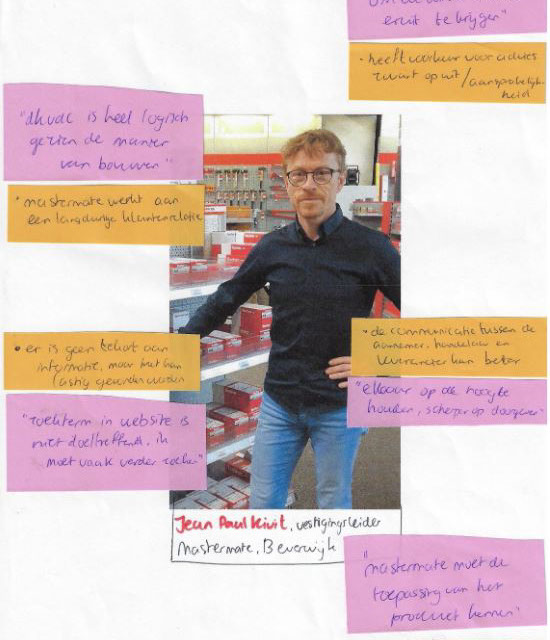 eruit te krijgen"
• heeft voorkeur voor advies
zwart op wit / aansprakelijk-
heid
"dhvdc is heel logisch
gezien de manier
van bouwen"
• mastermate werkt aan
een langdurige klantenrelatie
• er is geen tekort aan
informatie, maar het kan
lastig gevonden worden
• de communicatie tussen de
aannemer, handelaar en
leverancier kan beter
"elkaar op de hoogte
houden, scherper op doorgeven"
"zoekterm in website is
niet doeltreffend, ik
moet vaak verder zoeken"
Jean Paul Kivit, vestigingsleider
Mastermate, Beverwijk
"mastermate moet de
toepassing van het
product kennen"